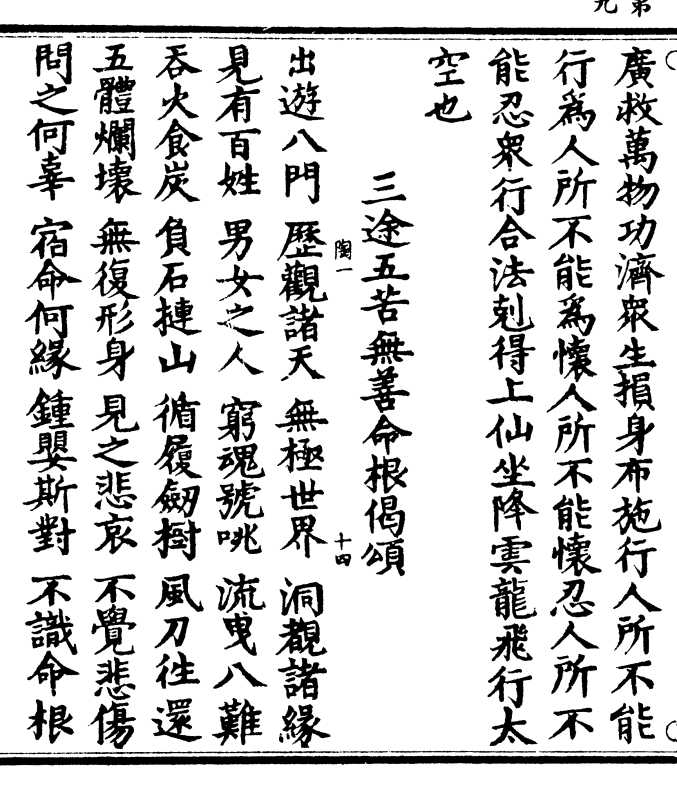 第
九
廣救萬物功濟衆生損身布施行人所不能
行爲人所不能爲懷人所不能懷忍人所不
能忍衆行合法剋得上仙坐降雲龍飛行太
空也
三途五苦無善命根偈頌
陶一
十四
出遊八門 歷觀諸天 無極世界 洞覩諸緣
見有百姓 男女之人 窮魂號咷 流曳八難
吞火食炭 負石摙山 循履劒樹 風刀徃還
五體爛壞 無復形身 見之悲哀 不覺悲傷
問之何辜 宿命何緣 鍾嬰斯對 不識命根